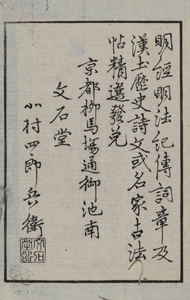 明経明法記傳詞章及
漢土歴史詩文或名家古法
帖精選發兌
京都柳馬場通御池南
文石堂
北村四郎兵衛